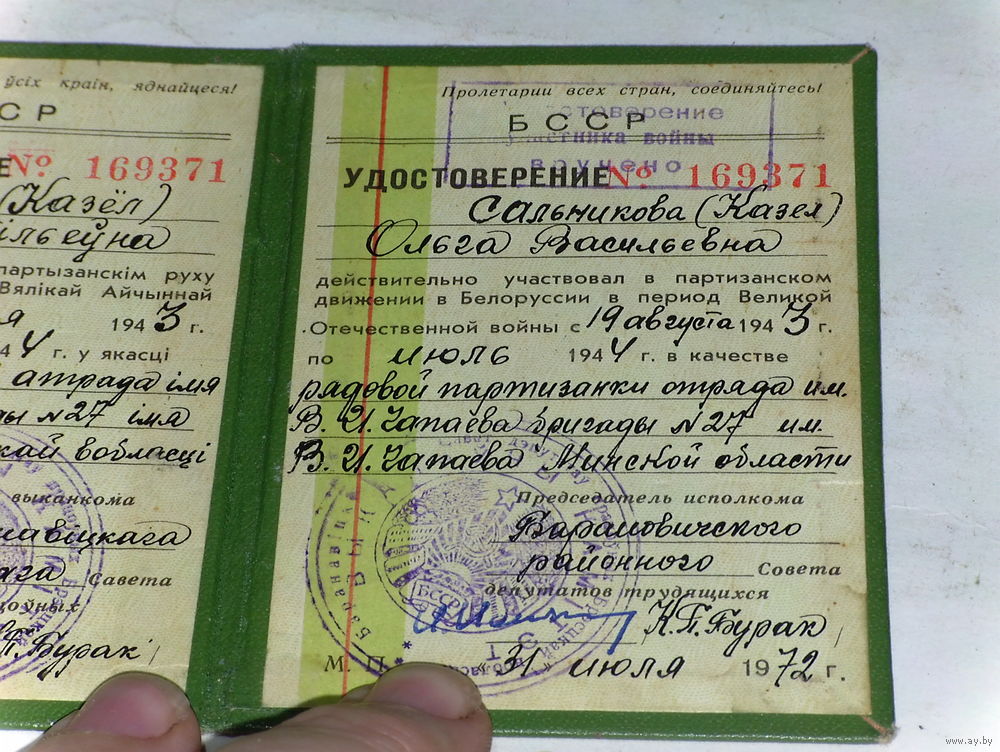 ўсіх краін, яднайцеся!
ССР
№ 169371
(Казёл)
ільеўна
партызанскім руху
Вялікай Айчыннай
1943 г.
4 г. у якасці
атрада імя
ды №27 імя
кай вобласці
выканкома
навіцкага
Савета
цоўных
К.П. Бурак
Пролетарии всех стран, соединяйтесь!
Удостоверение
участника войны
вручено
БССР
УДОСТОВЕРЕНИЕ № 169371
Сальникова (Казел)
Ольга Васильевна
действительно участвовал в партизанском
движении в Белоруссии в период Великой
Отечественной войны с 19 августа 1943 г.
по июль 1944 г. в качестве
рядовой партизанки отряда им.
В. И. Чапаева бригады №27 им.
В. И. Чапаева Минской области
Председатель исполкома
Барановичского
районного Совета
депутатов трудящихся
К.П. Бурак
М. П. "31" июля 1972 г.
БССР
www.ay.by